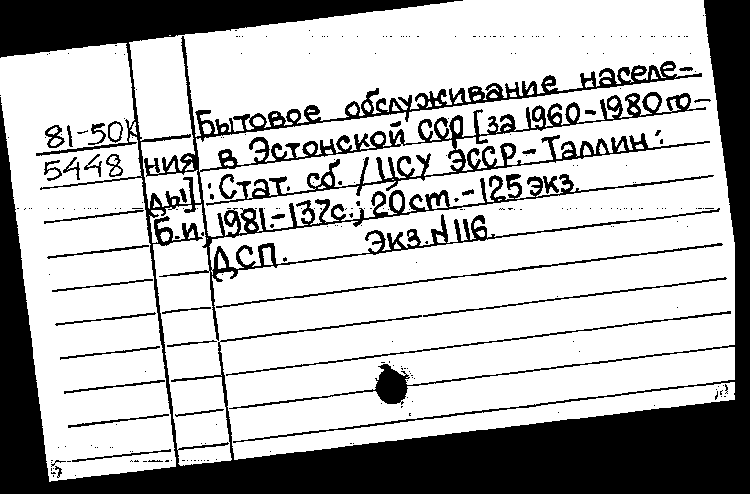 81-50К Бытовое обслуживание населе-
5448 ния в Эстонской ССР [за 1960-1980 го-
ды] : Стат. сб. / ЦСУ ЭССР.- Таллин :
Б.и., 1981.-137с.; 20 ст.-125 экз.
ДСП. Экз.N116.